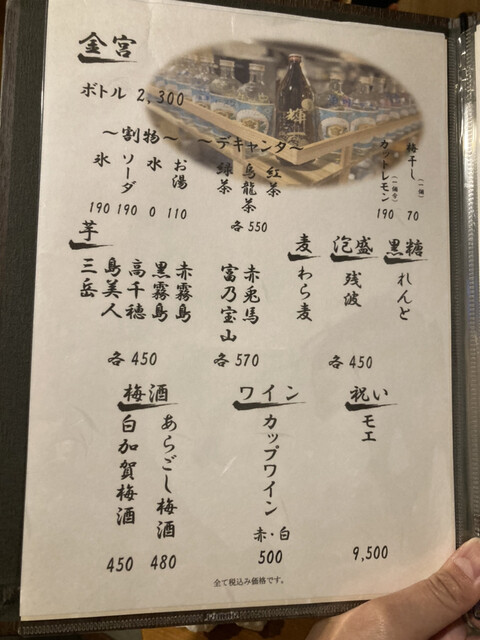 金宮
ボトル 2,300
～割物～
氷 190
ソーダ 190
水 0
お湯 110
～デキャンタ～
緑茶
烏龍茶
紅茶
各 550
カットレモン（一個分） 190
梅干し（一個） 70
芋
赤霧島
黒霧島
高千穂
島美人
三岳
各 450
赤兎馬
富乃宝山
各 570
麦
わら麦
泡盛
残波
黒糖
れんと
各 450
梅酒
あらごし梅酒 480
白加賀梅酒 450
ワイン
カップワイン
赤・白
500
祝い
モエ
9,500
全て税込み価格です。